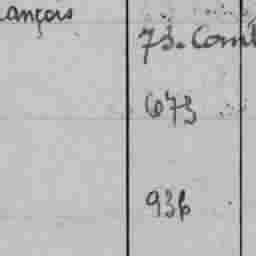 ançois
73. Com
673
936